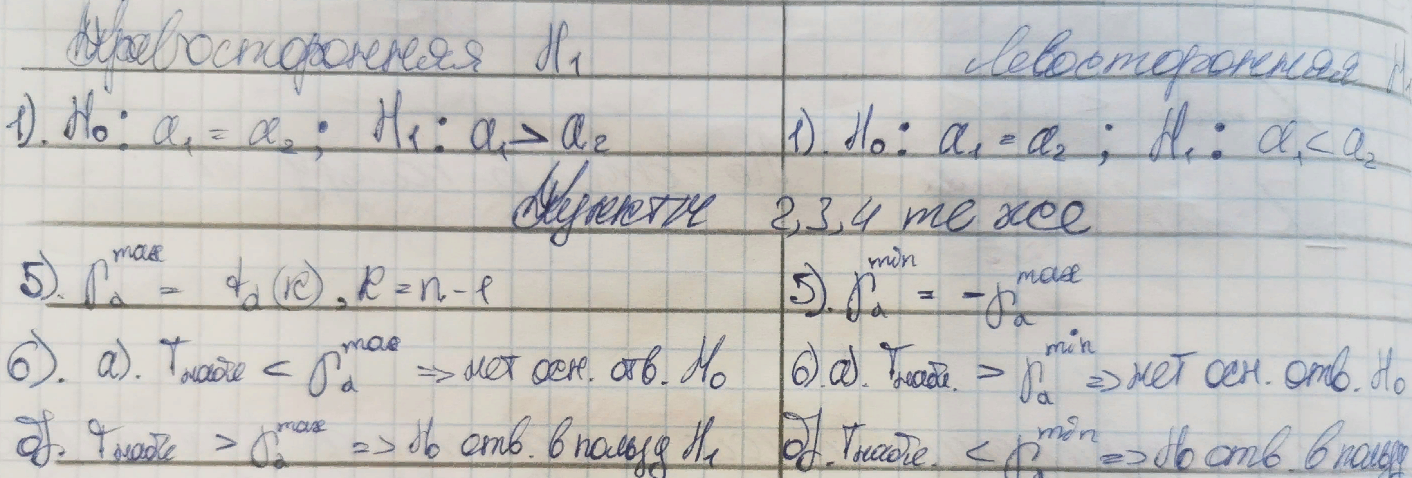 Правосторонняя H₁
1). H₀: a₁ = a₂; H₁: a₁ > a₂
Левосторонняя H₁
1). H₀: a₁ = a₂; H₁: a₁ < a₂
Пункты 2,3,4 те же
5). γ_α^max = t_α(k), k = n - 1
6). а). Tнабл < γ_α^max => нет осн. отв. H₀
б). Tнабл > γ_α^max => H₀ отв. в пользу H₁
5). γ_α^min = -γ_α^max
6). а). Tнабл. > γ_α^min => нет осн. отв. H₀
б). Tнабл. < γ_α^min => H₀ отв. в пользу